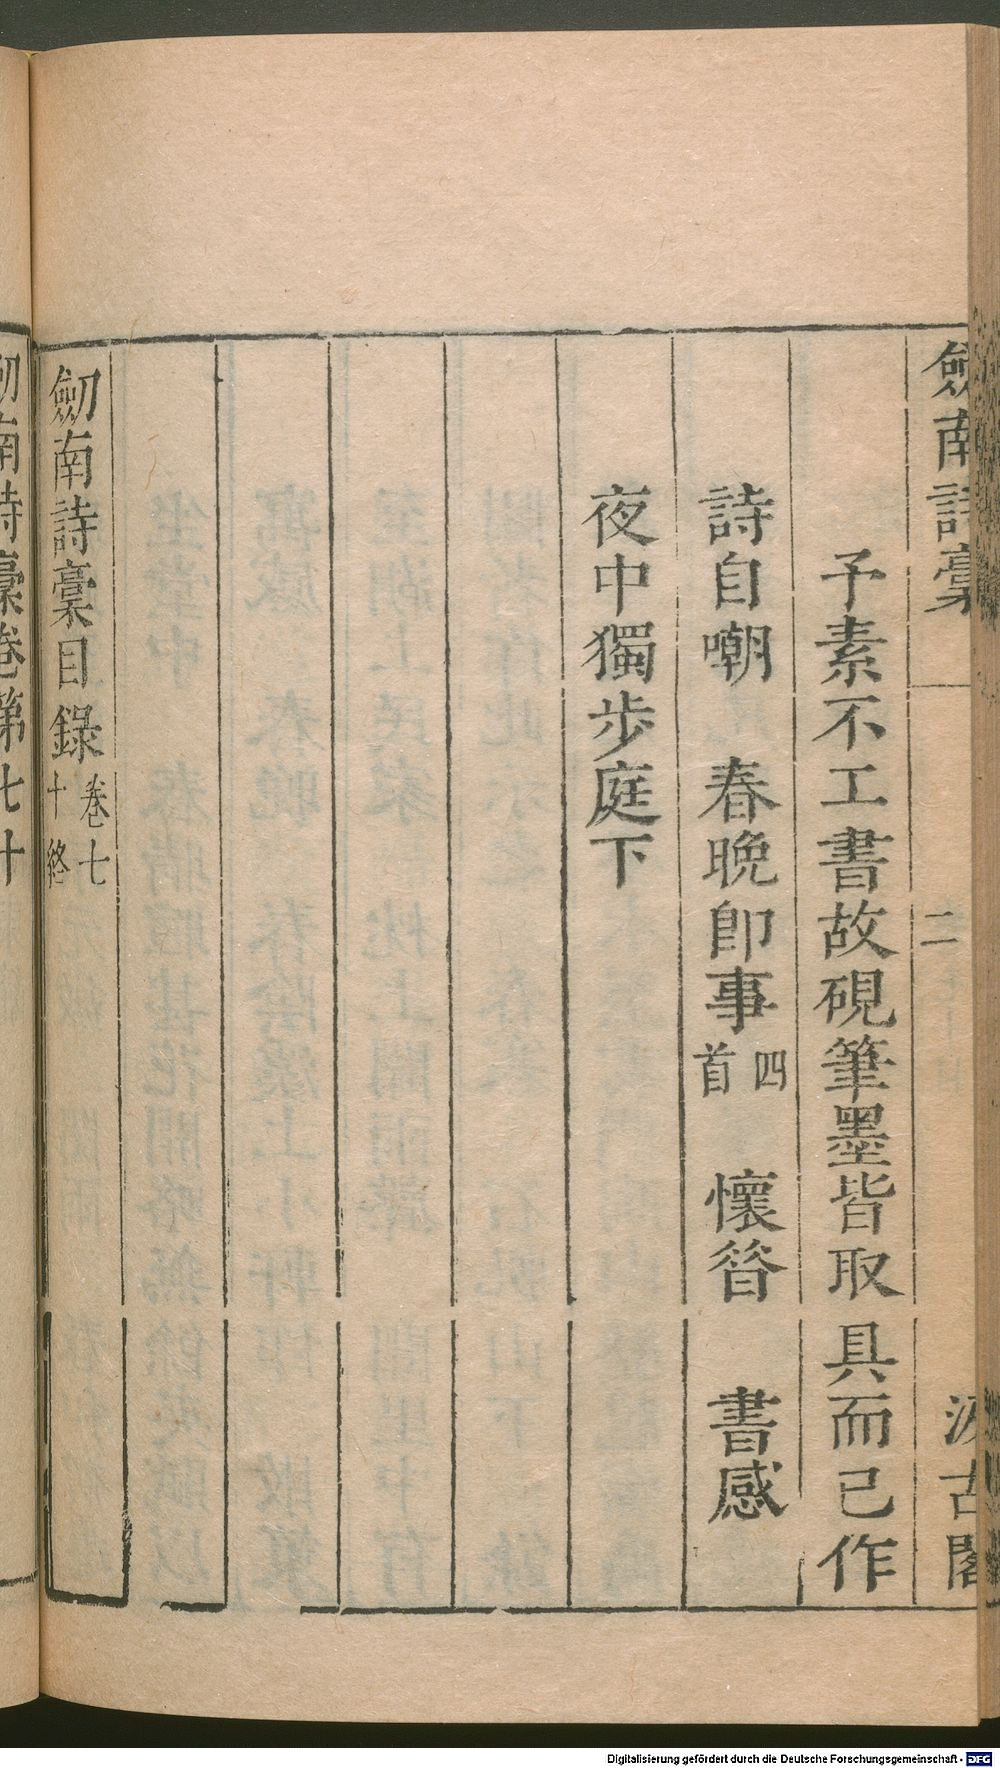 劒南詩稾
二
汲古閣
予素不工書故硯筆墨皆取具而已作
詩自嘲　春晚卽事四首　懷昝　書感
夜中獨步庭下
劒南詩稾目錄卷七十終
劒南詩稾卷第七十
Digitalisierung gefördert durch die Deutsche Forschungsgemeinschaft - DFG